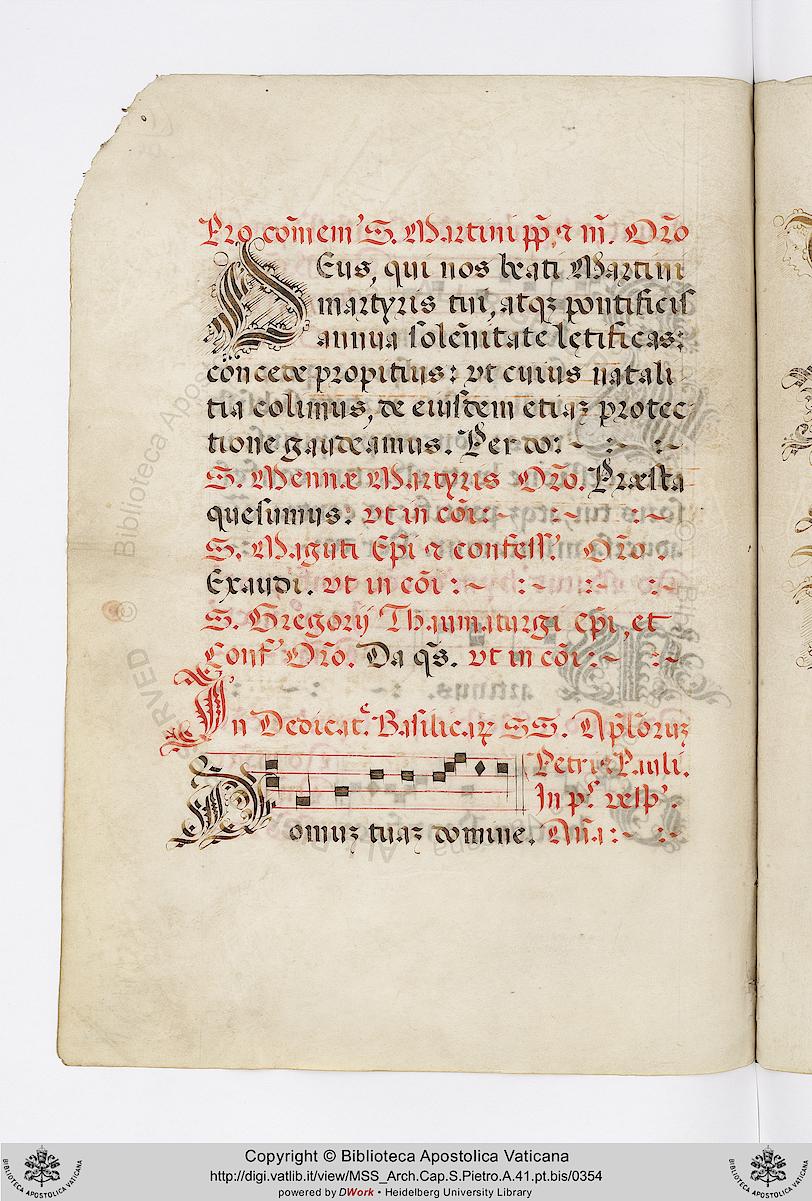 Pro com̃em' S. Martini pp̃, ⁊ m̃. Or̃o
DEus, qui nos beati Martini
martyris tui, atqꝫ pontificis
annua solẽnitate lętificas:
concede propitius: vt cuius natali
tia colimus, de eiusdem etiaꝫ protec
tione gaudeamus. Per do:~ :~ :~
S. Mennæ Martyris Or̃o. Præsta
quesumus. vt in cõi:~ :~ :~
S. Maguti Ep̃i ⁊ confess'. Or̃o.
Exaudi. vt in cõi:~ :~ :~ :~
S. Gregorij Thaumaturgi ep̃i, et
Conf' Or̃o. Da q̃s. vt in cõi:~ :~
In Dedicat.ᵉ Basilicaꝝ SS. Apl̃oruꝫ
Petri ⁊ Pauli.
In p.ˢ vesp'.
Domuꝫ tuaꝫ domine. Añа:~ :~
Copyright © Biblioteca Apostolica Vaticana
http://digi.vatlib.it/view/MSS_Arch.Cap.S.Pietro.A.41.pt.bis/0354
powered by DWork • Heidelberg University Library